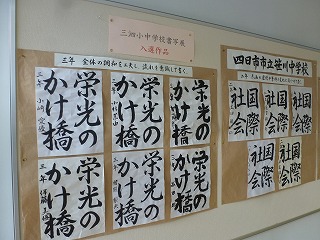 三泗小中学校書写展
入選作品
三年 全体の調和を工夫し 流れを意識して書く。
栄光の
かけ橋
栄光の
かけ橋
栄光の
かけ橋
栄光の
かけ橋
栄光の
かけ橋
栄光の
かけ橋
四日市市立笹川中学校
国際
社会
国際
社会
国際
社会
国際
社会
国際
社会